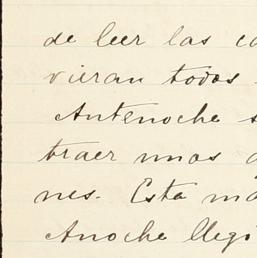 de leer las
vieran todos
Antenoche
traer unos
nes. Esta
Anoche llegó